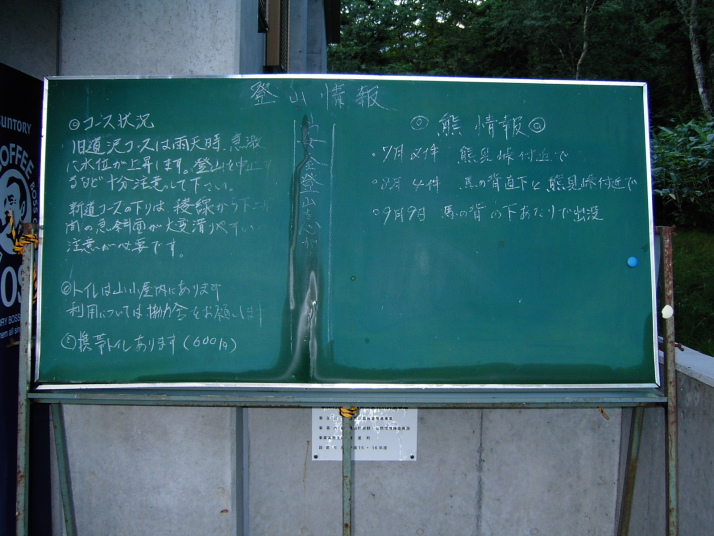 登山情報
◎コース状況
旧道沢コースは雨天時、急激
に水位が上昇します。登山を中止す
るなど十分注意して下さい。
新道コースの下りは、稜線から下
間の急斜面が大変滑りやすい
注意が必要です。
◎トイレは山小屋内にあります
利用については協力金をお願いします
◎携帯トイレあります(600円)
安全登山を心が
◎熊情報◎
・7月 2件 熊見峠付近で
・8月 4件 馬の背直下と熊見峠付近で
・9月9日 馬の背の下あたりで出没
SUNTORY
COFFEE
BOSS